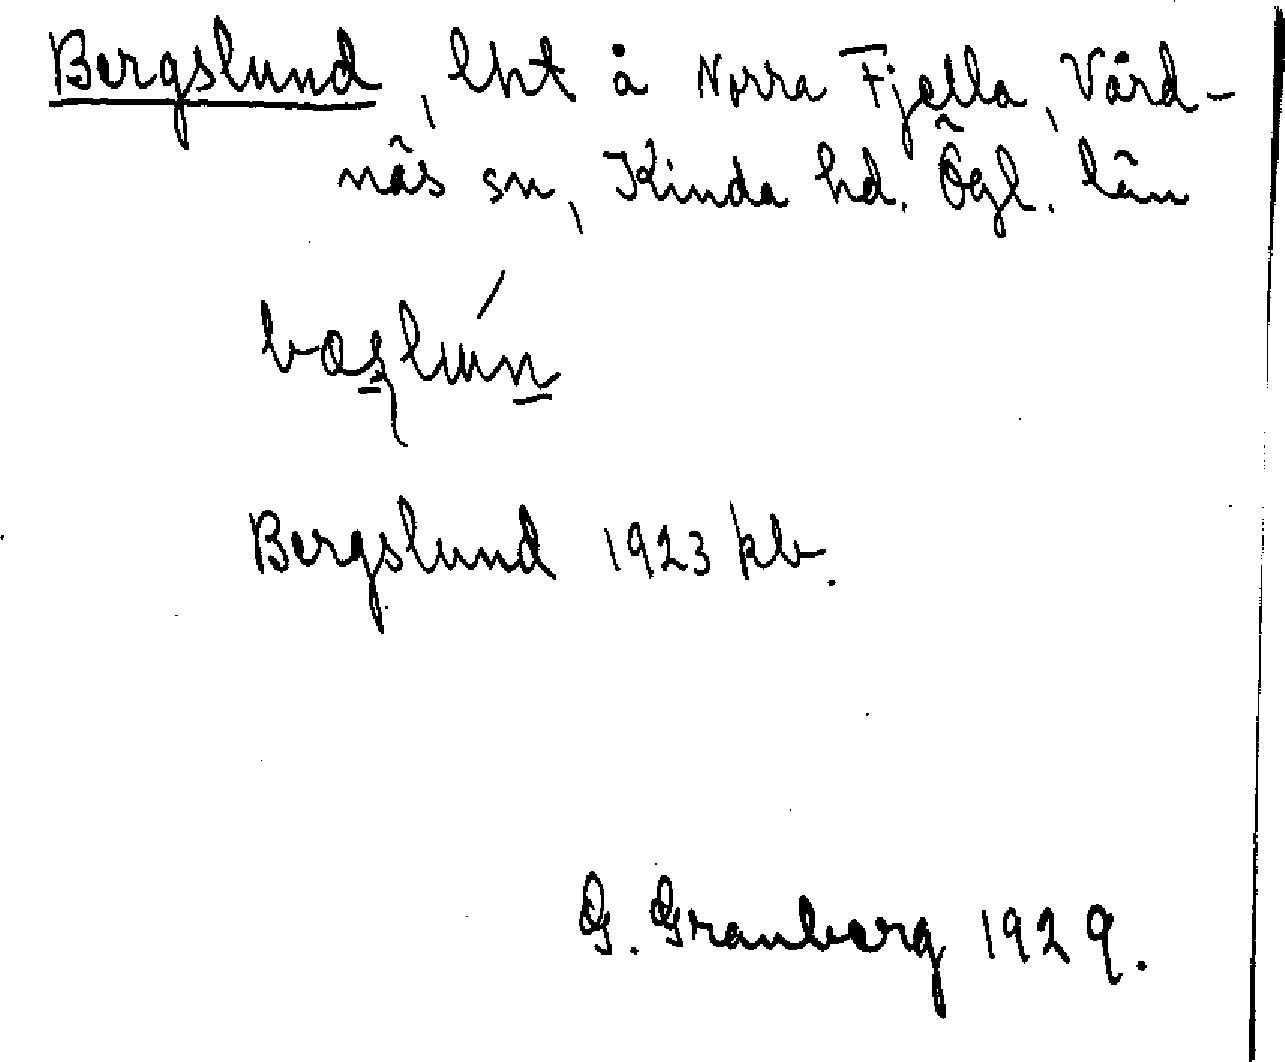 Bergslund, lht å Norra Fjella, Vård-
näs sn, Kinda hd. Ögl. län
Bergslund 1923 kb.
G. Granberg 1929.